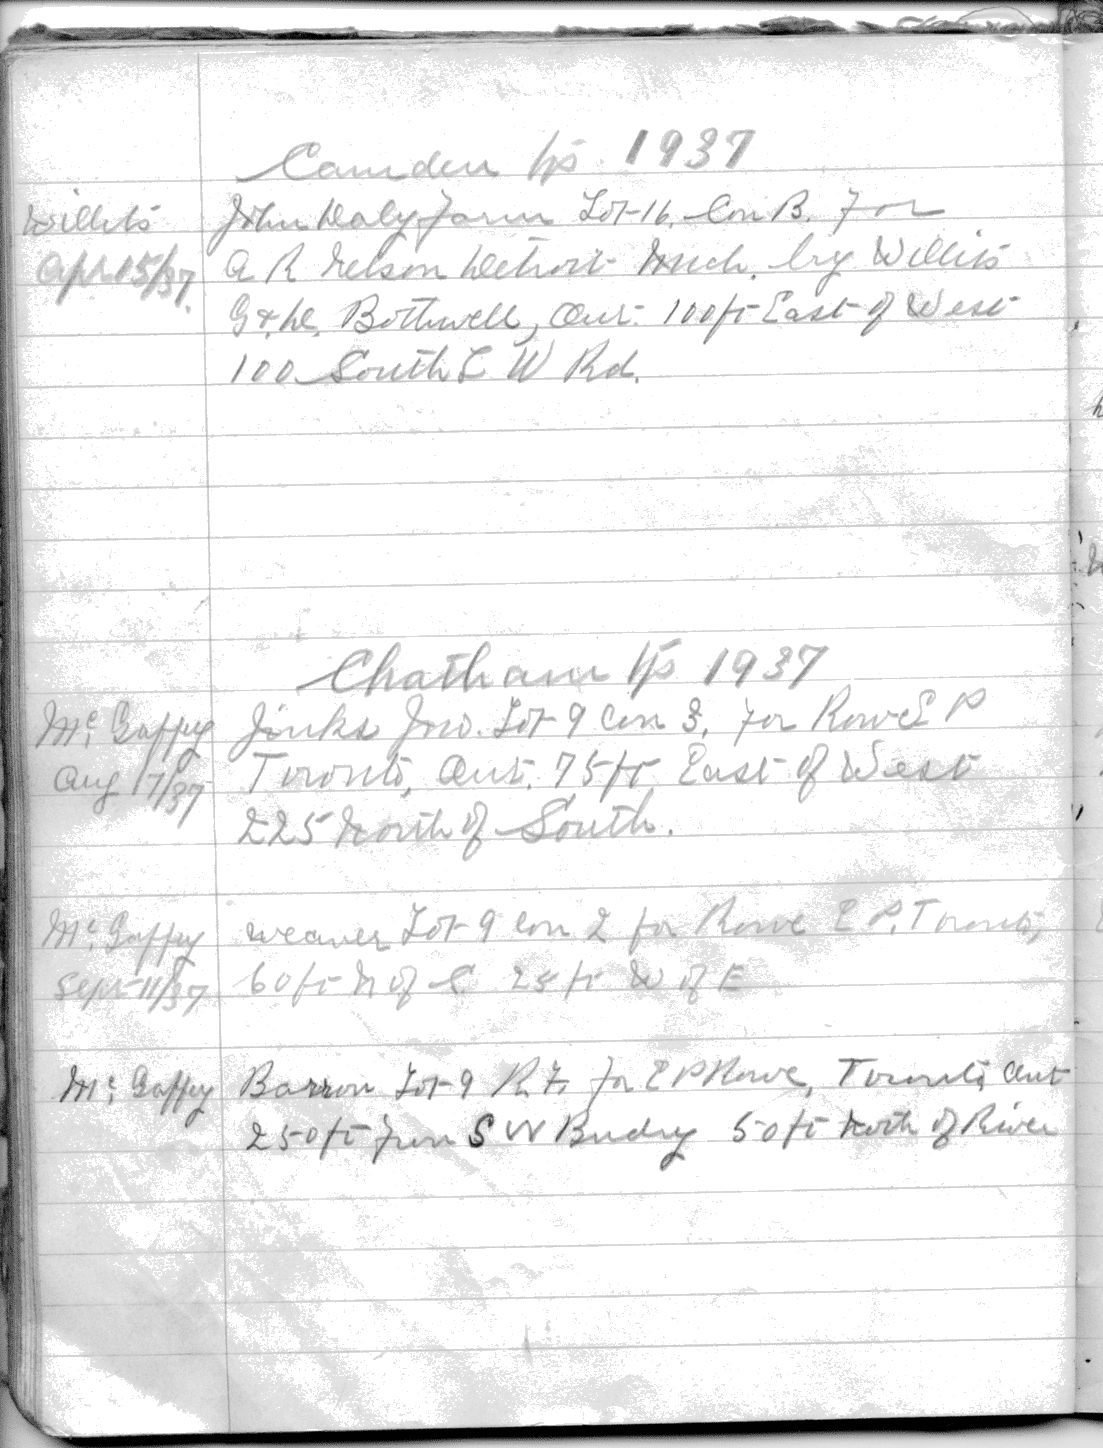 Camden Tp 1937
Willits John Daly farm Lot 16. Con B. For
Apr 15/37. A R Nelson Detroit Mich. by Willits
Bothwell, Ont. 100 ft East of West
100 South L W Rd.
Chatham Tp 1937
Mc. Gaffey Jinks Jno. Lot 9 Con 3, For Rowe E P
Aug 17/37 Toronto, Ont. 75 ft East of West
225 North of South.
Mc. Gaffey weaver Lot 9 Con 2 for Rowe E P. Toronto,
Sept 11/37 60 ft N of S. 25 ft W of E
Mc. Gaffey Barron Lot 9 R. F. for E P Rowe, Toronto, Ont
250 ft from S W Bndry 50 ft North of River